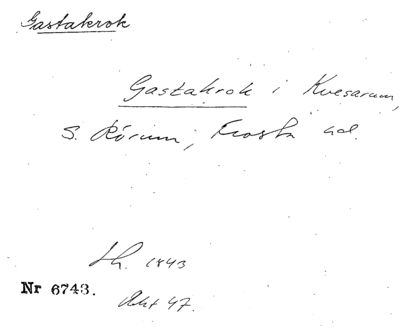 Gastakrok
Gastakrok i Kvesarum,
S. Rörum, Frosta hd.
Lh. 1843
Nr 6743.
Akt 47.